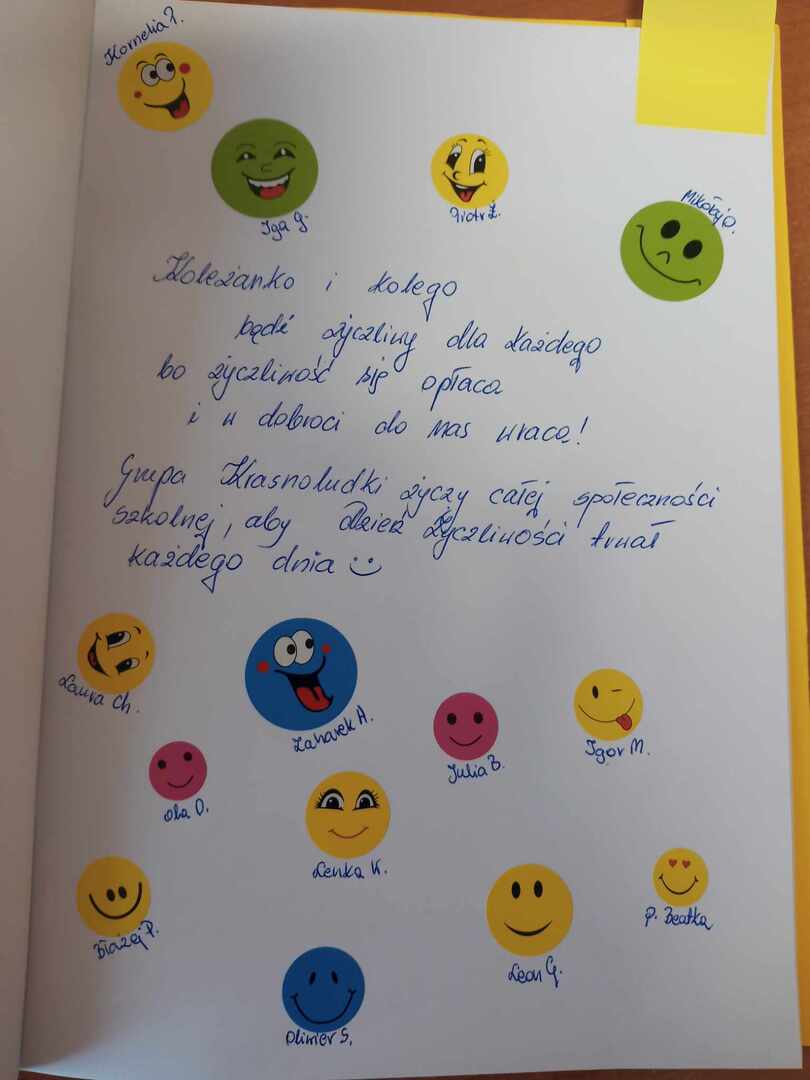 Kornelia P.
Iga G.
Piotr Ż.
Mikołaj O.
Koleżanko i kolego
bądź życzliwy dla każdego
bo życzliwość się opłaca
i w dobroci do nas wraca!
Grupa Krasnoludki życzy całej społeczności
szkolnej, aby Dzień Życzliwości trwał
każdego dnia :)
Laura Ch.
Zaharek A.
Julia B.
Igor M.
Ola D.
Lenka K.
Błażej P.
Leon G.
P. Beatka
Oliwier S.